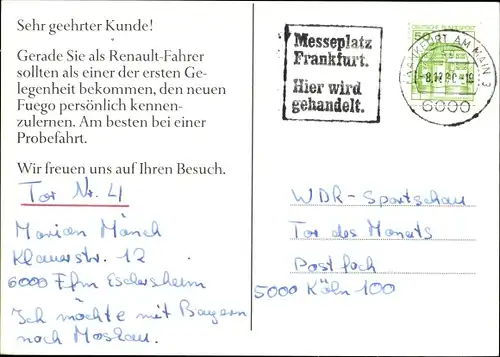 Sehr geehrter Kunde!
Gerade Sie als Renault-Fahrer
sollten als einer der ersten Ge-
legenheit bekommen, den neuen
Fuego persönlich kennen-
zulernen. Am besten bei einer
Probefahrt.
Wir freuen uns auf Ihren Besuch.
Tor Nr. 4
Marion Mönch
Klauerstr. 12
6000 Ffm Eschersheim
Ich möchte mit Bayern
nach Moskau.
Messeplatz
Frankfurt.
Hier wird
gehandelt.
FRANKFURT AM MAIN 3
6000
WDR-Sportschau
Tor des Monats
Postfach
5000 Köln 100